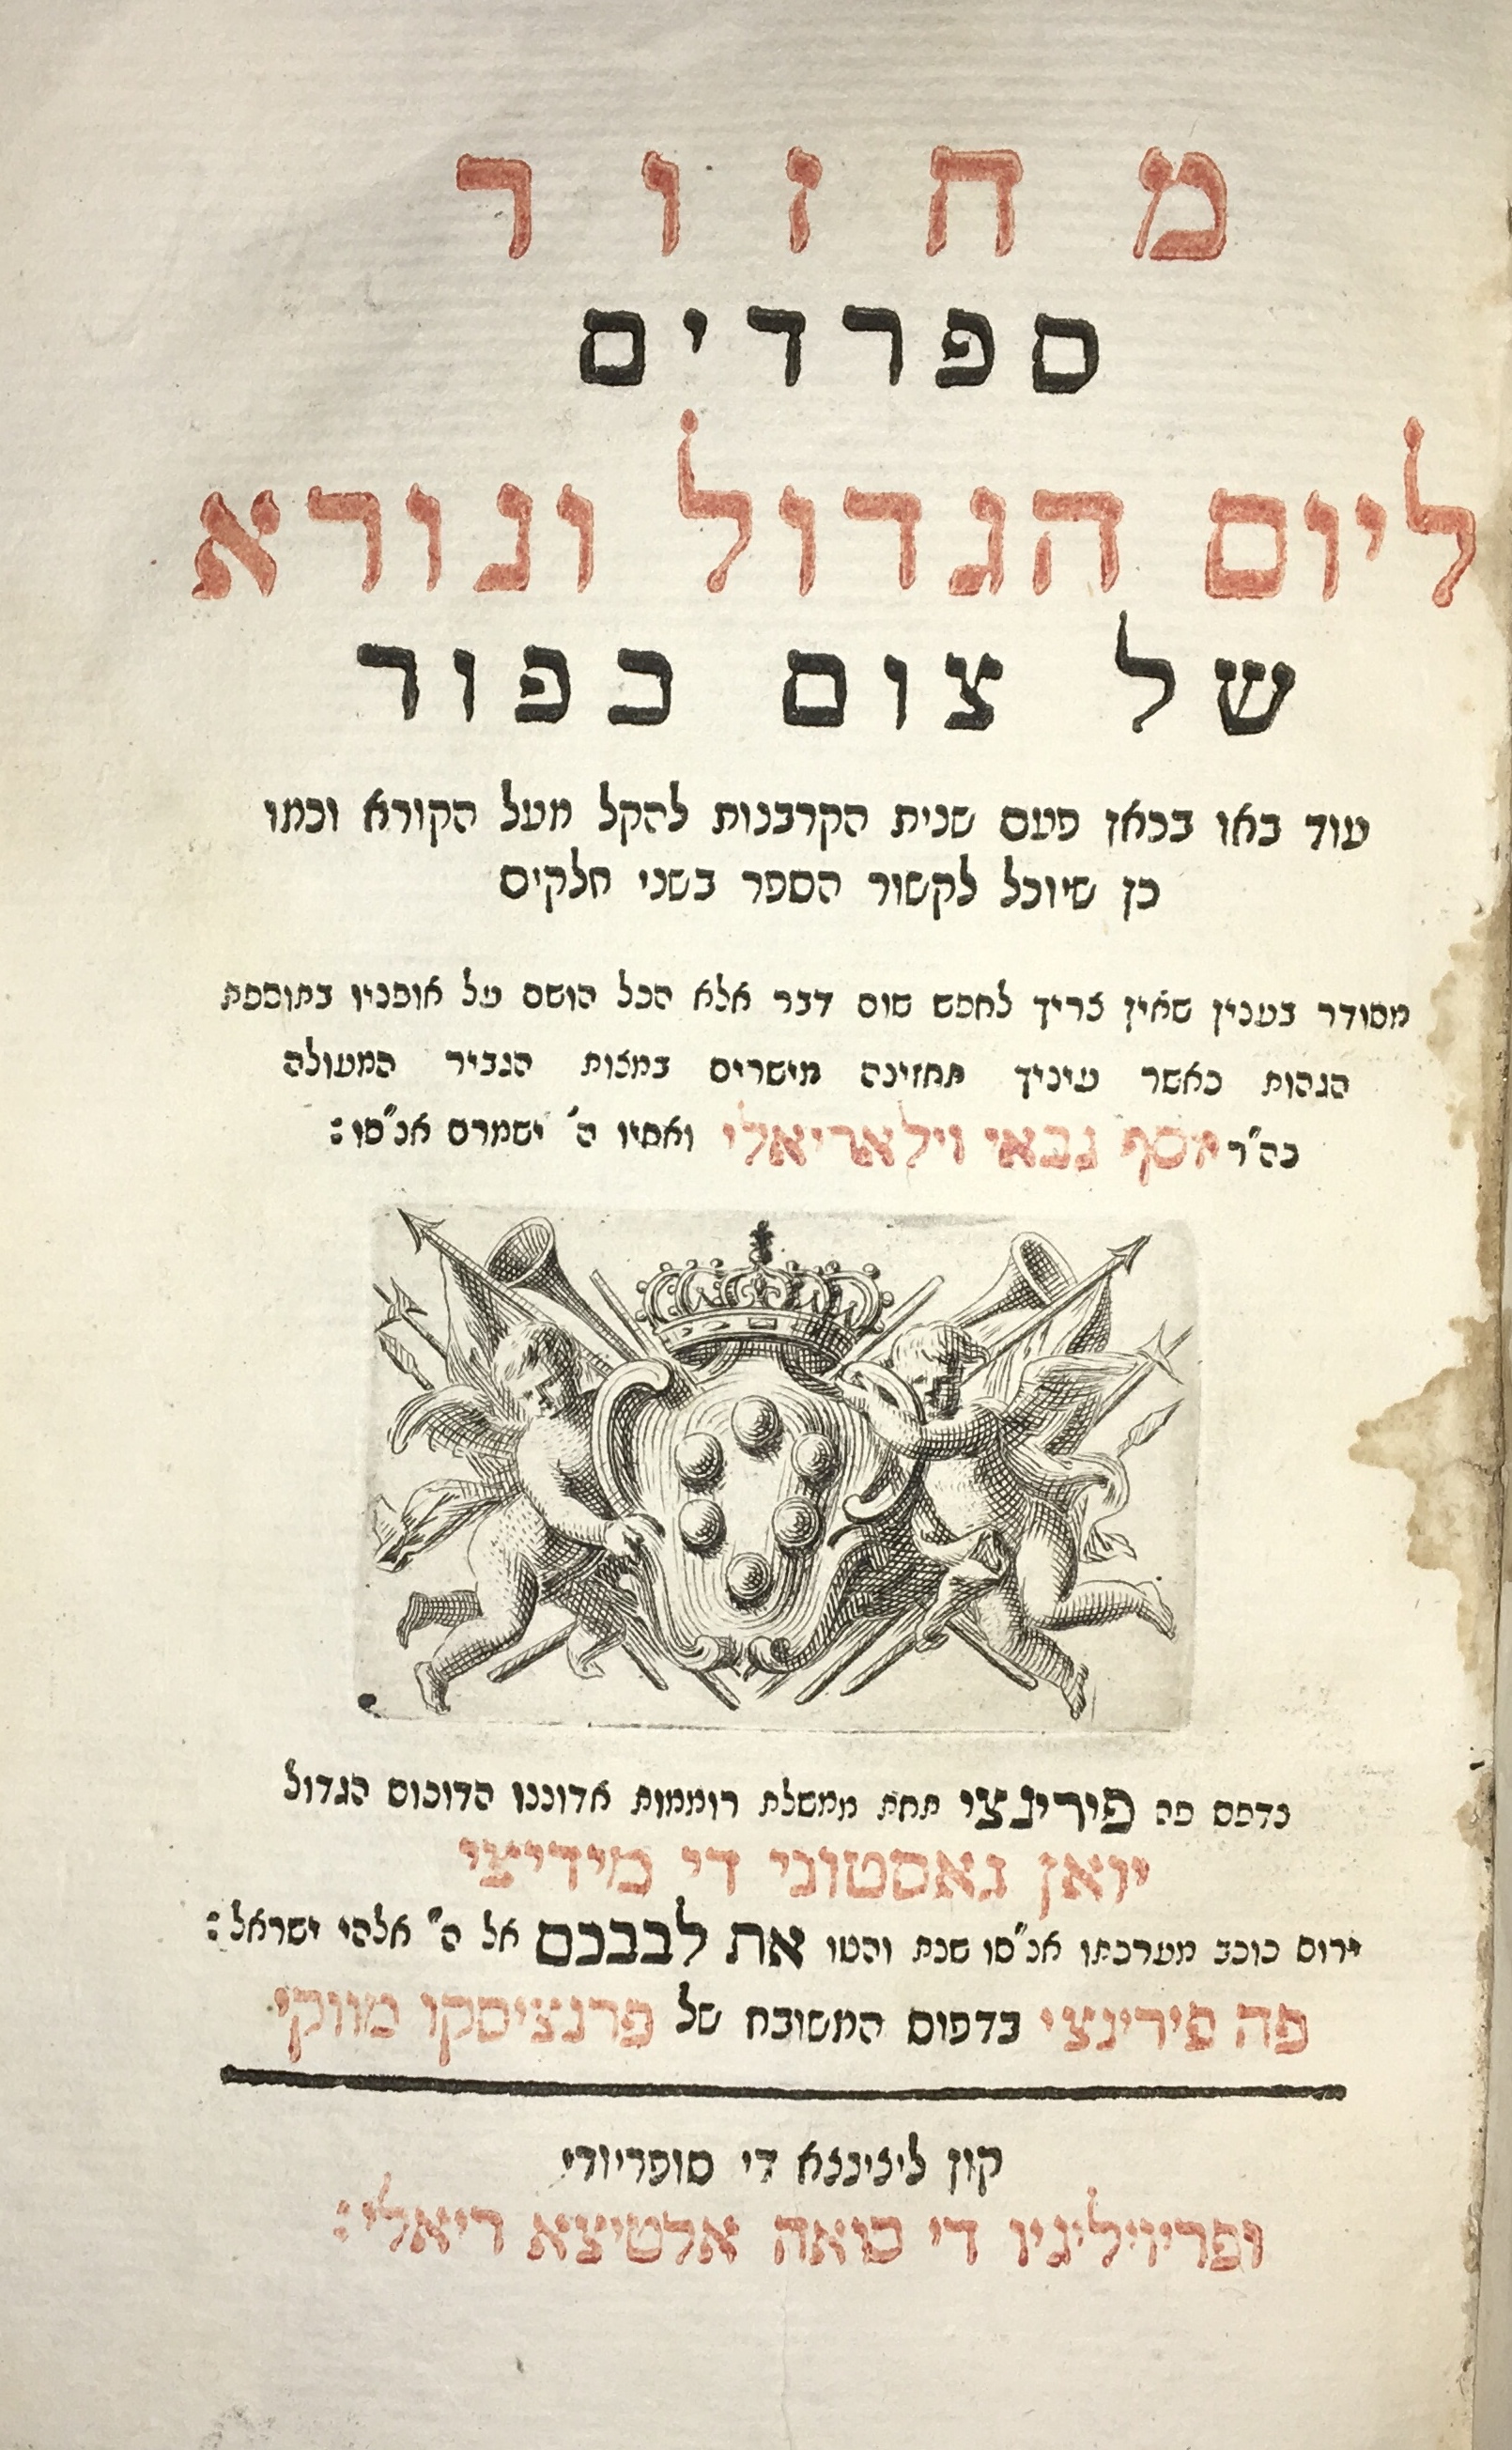 מחזור
ספרדים
ליום הגדול ונורא
של צום כפור
עוד באו בכאן פעם שנית הקרבנות להקל מעל הקורא וכמו
כן שיוכל לקשור הספר בשני חלקים
מסודר בענין שאין צריך לחפש שום דבר אלא הכל הושם על אופניו בתוספת
הגהות כאשר עיניך תחזינה מישרים במצות הגביר המעולה
כה״ר יוסף גבאי וילאריאלי ואחיו ה׳ ישמרם אנ״סו:
נדפס פה פירינצי תחת ממשלת רוממות אדוננו הדוכוס הגדול
יואן גאסטוני די מידיצי
ירום כוכב מערכתו אנ״סו שנת והטו את לבבכם אל ה״ אלהי ישראל:
פה פירינצי בדפוס המשובח של פרנציסקו מווקי
קון ליצינצא די סופריורי
ופריוילוגיו די סואה אלטיצא ריאלי: